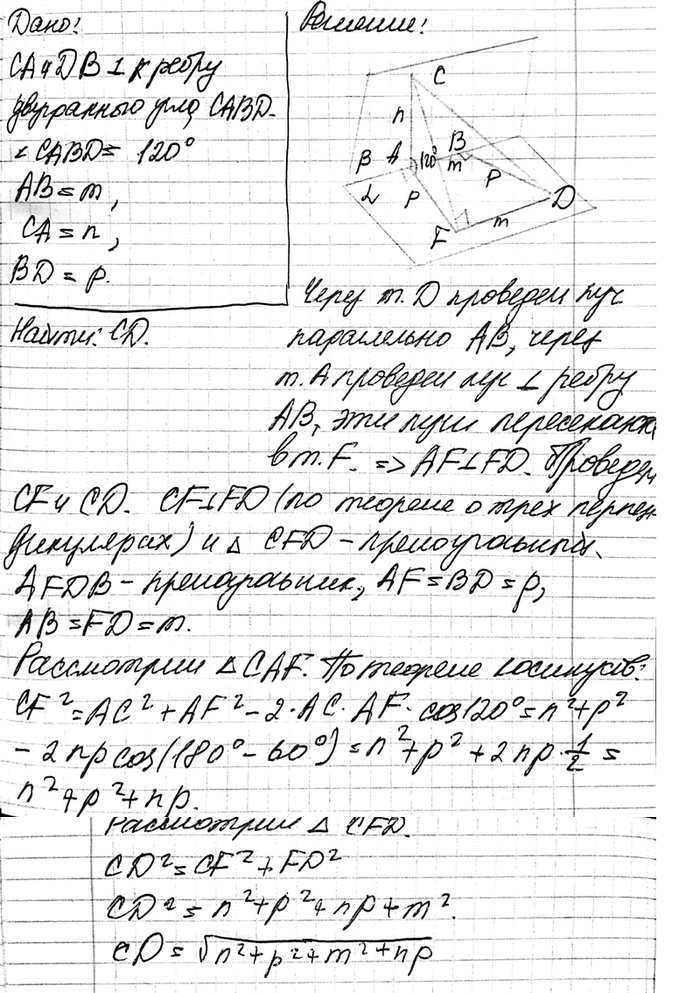 Дано:
CA и DB ⊥ к ребру
двугранного угла CABD.
∠ CABD = 120°
AB = m,
CA = n,
BD = p.
Найти: CD.
Решение:
C
n
β A 120° B
m
α p p
D
F m
Через т. D проведем луч
паралельно AB, через
т. A проведем луч ⊥ ребру
AB, эти лучи пересекаю
в т. F. => AF⊥FD. Проведем
CF и CD. CF⊥FD (по теореме о трех перпен
дикулярах) и △ CFD – прямоугольный.
AFDB – прямоугольник, AF = BD = p,
AB = FD = m.
Рассмотрим △ CAF. По теореме косинусов:
CF² = AC² + AF² - 2·AC·AF·cos120° = n² + p²
- 2np cos(180° - 60°) = n² + p² + 2np·1/2 =
n² + p² + np.
Рассмотрим △ CFD.
CD² = CF² + FD²
CD² = n² + p² + np + m².
CD = √n² + p² + m² + np